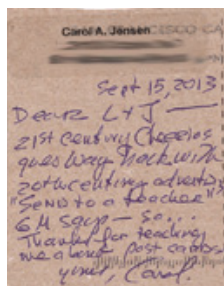 Carol A. Jensen
Sept 15, 2013
Dear L + J —
21st century Cheerios
goes way back with
20th century advert
"Send to a Teacher"
GM says — so...
Thanks for teaching
me about post cards.
yours, Carol.